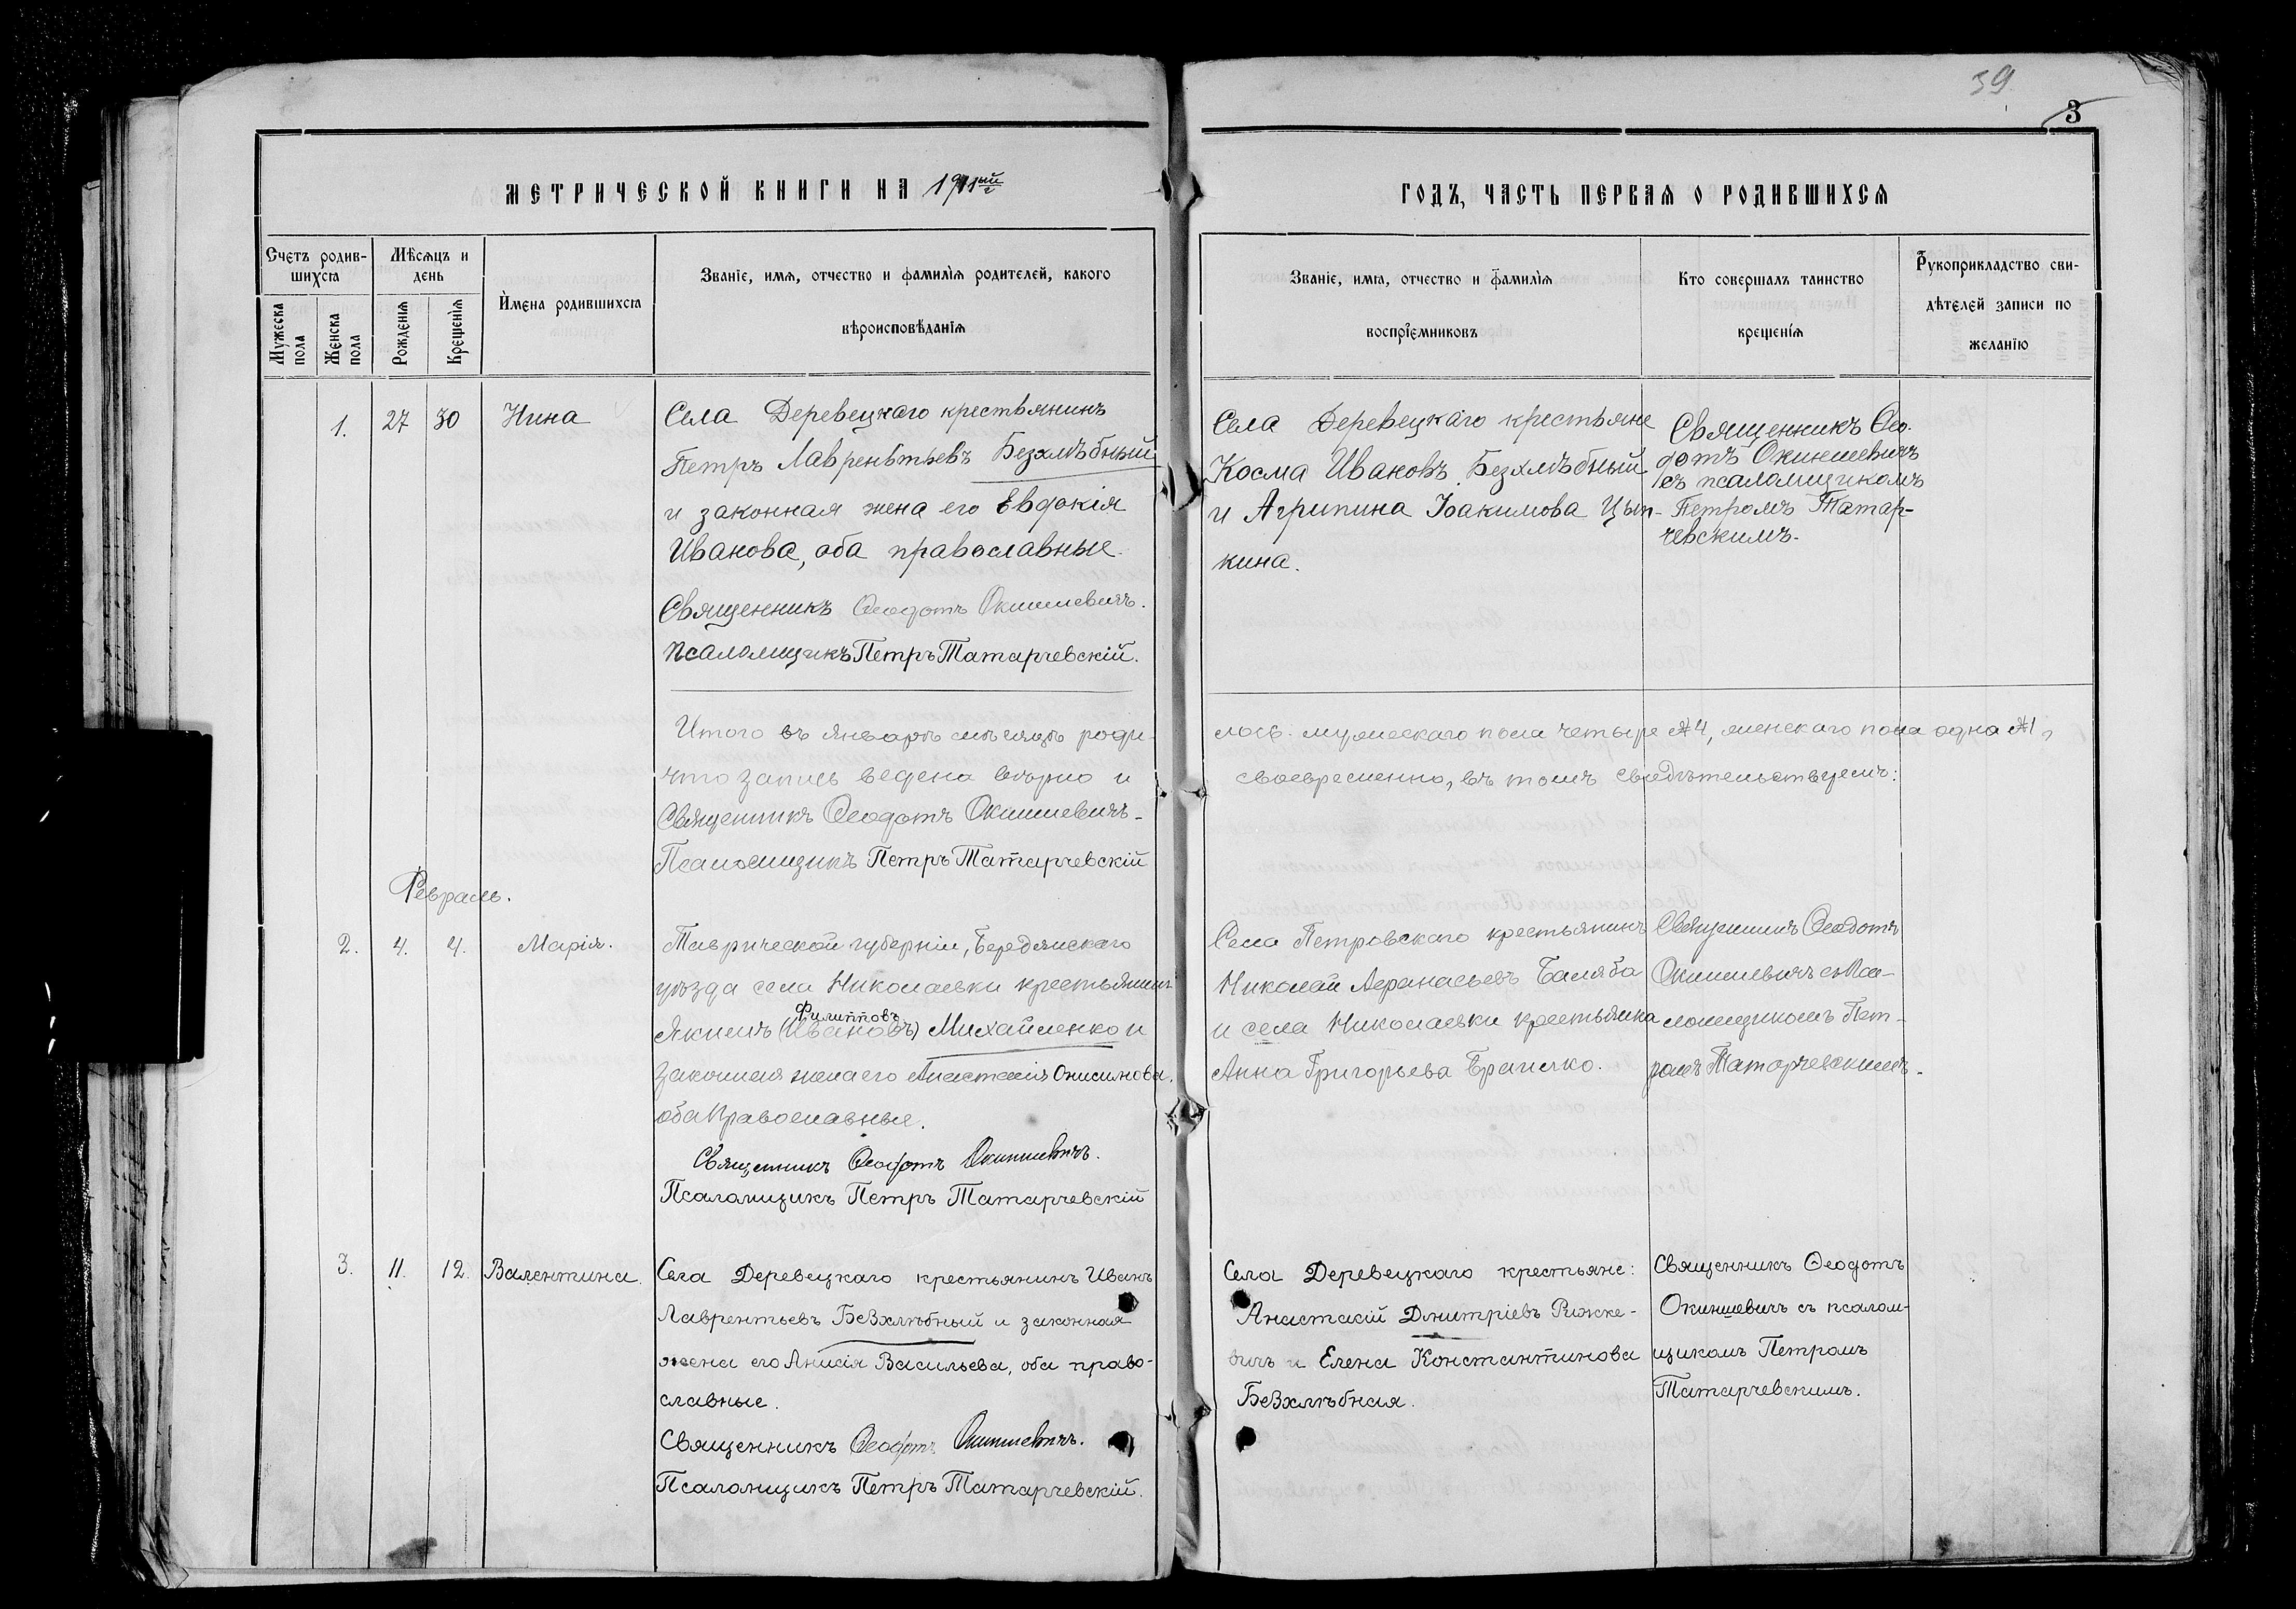 59
3
МЕТРИЧЕСКОЙ КНИГИ НА 1911ый
ГОДЪ, ЧАСТЬ ПЕРВАЯ О РОДИВШИХСЯ
Счетъ родив-
шихся
Мужеска пола
Женска пола
Мѣсяцъ и
день
Рожденія
Крещенія
Имена родившихся
Званіе, имя, отчество и фамилія родителей, какого
вѣроисповѣданія
Званіе, имя, отчество и фамилія
воспріемниковъ
Кто совершалъ таинство
крещенія
Рукоприкладство сви-
дѣтелей записи по
желанію
1. 27 30 Нина
Села Деревецкаго крестьянинъ
Петръ Лаврентьевъ Безхлѣбный
и законная жена его Евдокія
Иванова, оба православные.
Священникъ Ѳеодотъ Окиншевичъ.
Псаломщикъ Петръ Татарчевскій.
Села Деревецкаго крестьяне
Косма Ивановъ Безхлѣбный
и Агрипина Іоакимова Цып-
кина.
Священникъ Ѳео-
дотъ Окиншевичъ
съ псаломщикомъ
Петромъ Татар-
чевскимъ.
Итого въ январѣ мѣсяцѣ роди-
лось мужескаго пола четыре №4, женскаго пола одна №1,
что запись ведена вѣрно и
своевременно, въ томъ свидѣтельствуемъ:
Священникъ Ѳеодотъ Окиншевичъ.
Псаломщикъ Петръ Татарчевскій
Февраль.
2. 4. 4. Марія.
Таврической губерніи, Бердянскаго
уѣзда села Николаевки крестьянинъ
Филипповъ
Якимъ (Ивановъ) Михайленко и
законная жена его Анастасія Онисимова,
оба православные.
Священникъ Ѳеодотъ Окиншевичъ.
Псаломщикъ Петръ Татарчевскій
Села Петровскаго крестьянинъ
Николай Аѳанасьевъ Баляба
и села Николаевки крестьянка
Анна Григорьева
Священникъ Ѳеодотъ
Окиншевичъ съ Пса-
ломщикомъ Пет-
ромъ Татарчевскимъ.
3. 11. 12. Валентина.
Села Деревецкаго крестьянинъ Иванъ
Лаврентьевъ Безхлѣбный и законная
жена его Анисія Васильева, оба право-
славные.
Священникъ Ѳеодотъ Окиншевичъ.
Псаломщикъ Петръ Татарчевскій.
Села Деревецкаго крестьяне:
Анастасій Дмитріевъ Рижке-
вичъ и Елена Константинова
Безхлѣбная.
Священникъ Ѳеодотъ
Окиншевичъ съ псалом-
щикомъ Петромъ
Татарчевскимъ.